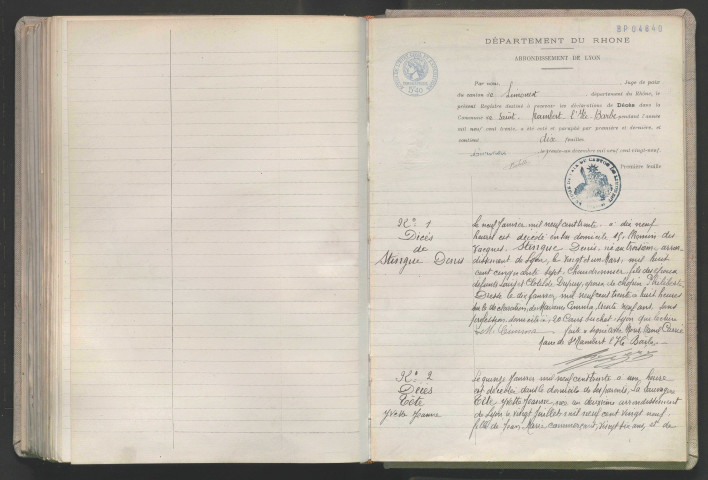 BP04840
DÉPARTEMENT DU RHONE
ARRONDISSEMENT DE LYON
Par nous, Juge de paix
du canton de Limonest département du Rhône, le
présent Registre destiné à recevoir les déclarations de Décès dans la
Commune de Saint Rambert l'Ile Barbe pendant l'année
mil neuf cent trente, a été coté et paraphé par première et dernière, et
contient dix feuilles
décembre mil neuf cent vingt-neuf.
Première feuille
N° 1
Décès
de
Stengue Denis
Le neuf Janvier mil neuf cent trente à dix neuf
heures est décédé en son domicile
Stengue Denis, né au troisième arron
dissement de Lyon, le vingt et un Mars, mil huit
cent cinquante sept, Chaudronnier, fils des époux
défunts Louis et Clotilde Dupuy, époux de Philiberte
Dressé le dix Janvier, mil neuf cent trente à huit heures
sur la déclaration de trente neuf ans, sans
profession domiciliée, 20 Cours Lyon qui lecture
faite a signé avec Nous
Maire de St Rambert l'Ile Barbe
N° 2
Décès
Tête
Yvette Jeanne
Le quinze Janvier mil neuf cent trente à une heure
est décédée dans le domicile de ses parents, La Sauvagère
Tête Yvette Jeanne, née au deuxième arrondissement
de Lyon le vingt Juillet mil neuf cent vingt neuf
fille de Jean Marie commerçant, vingt six ans, et de